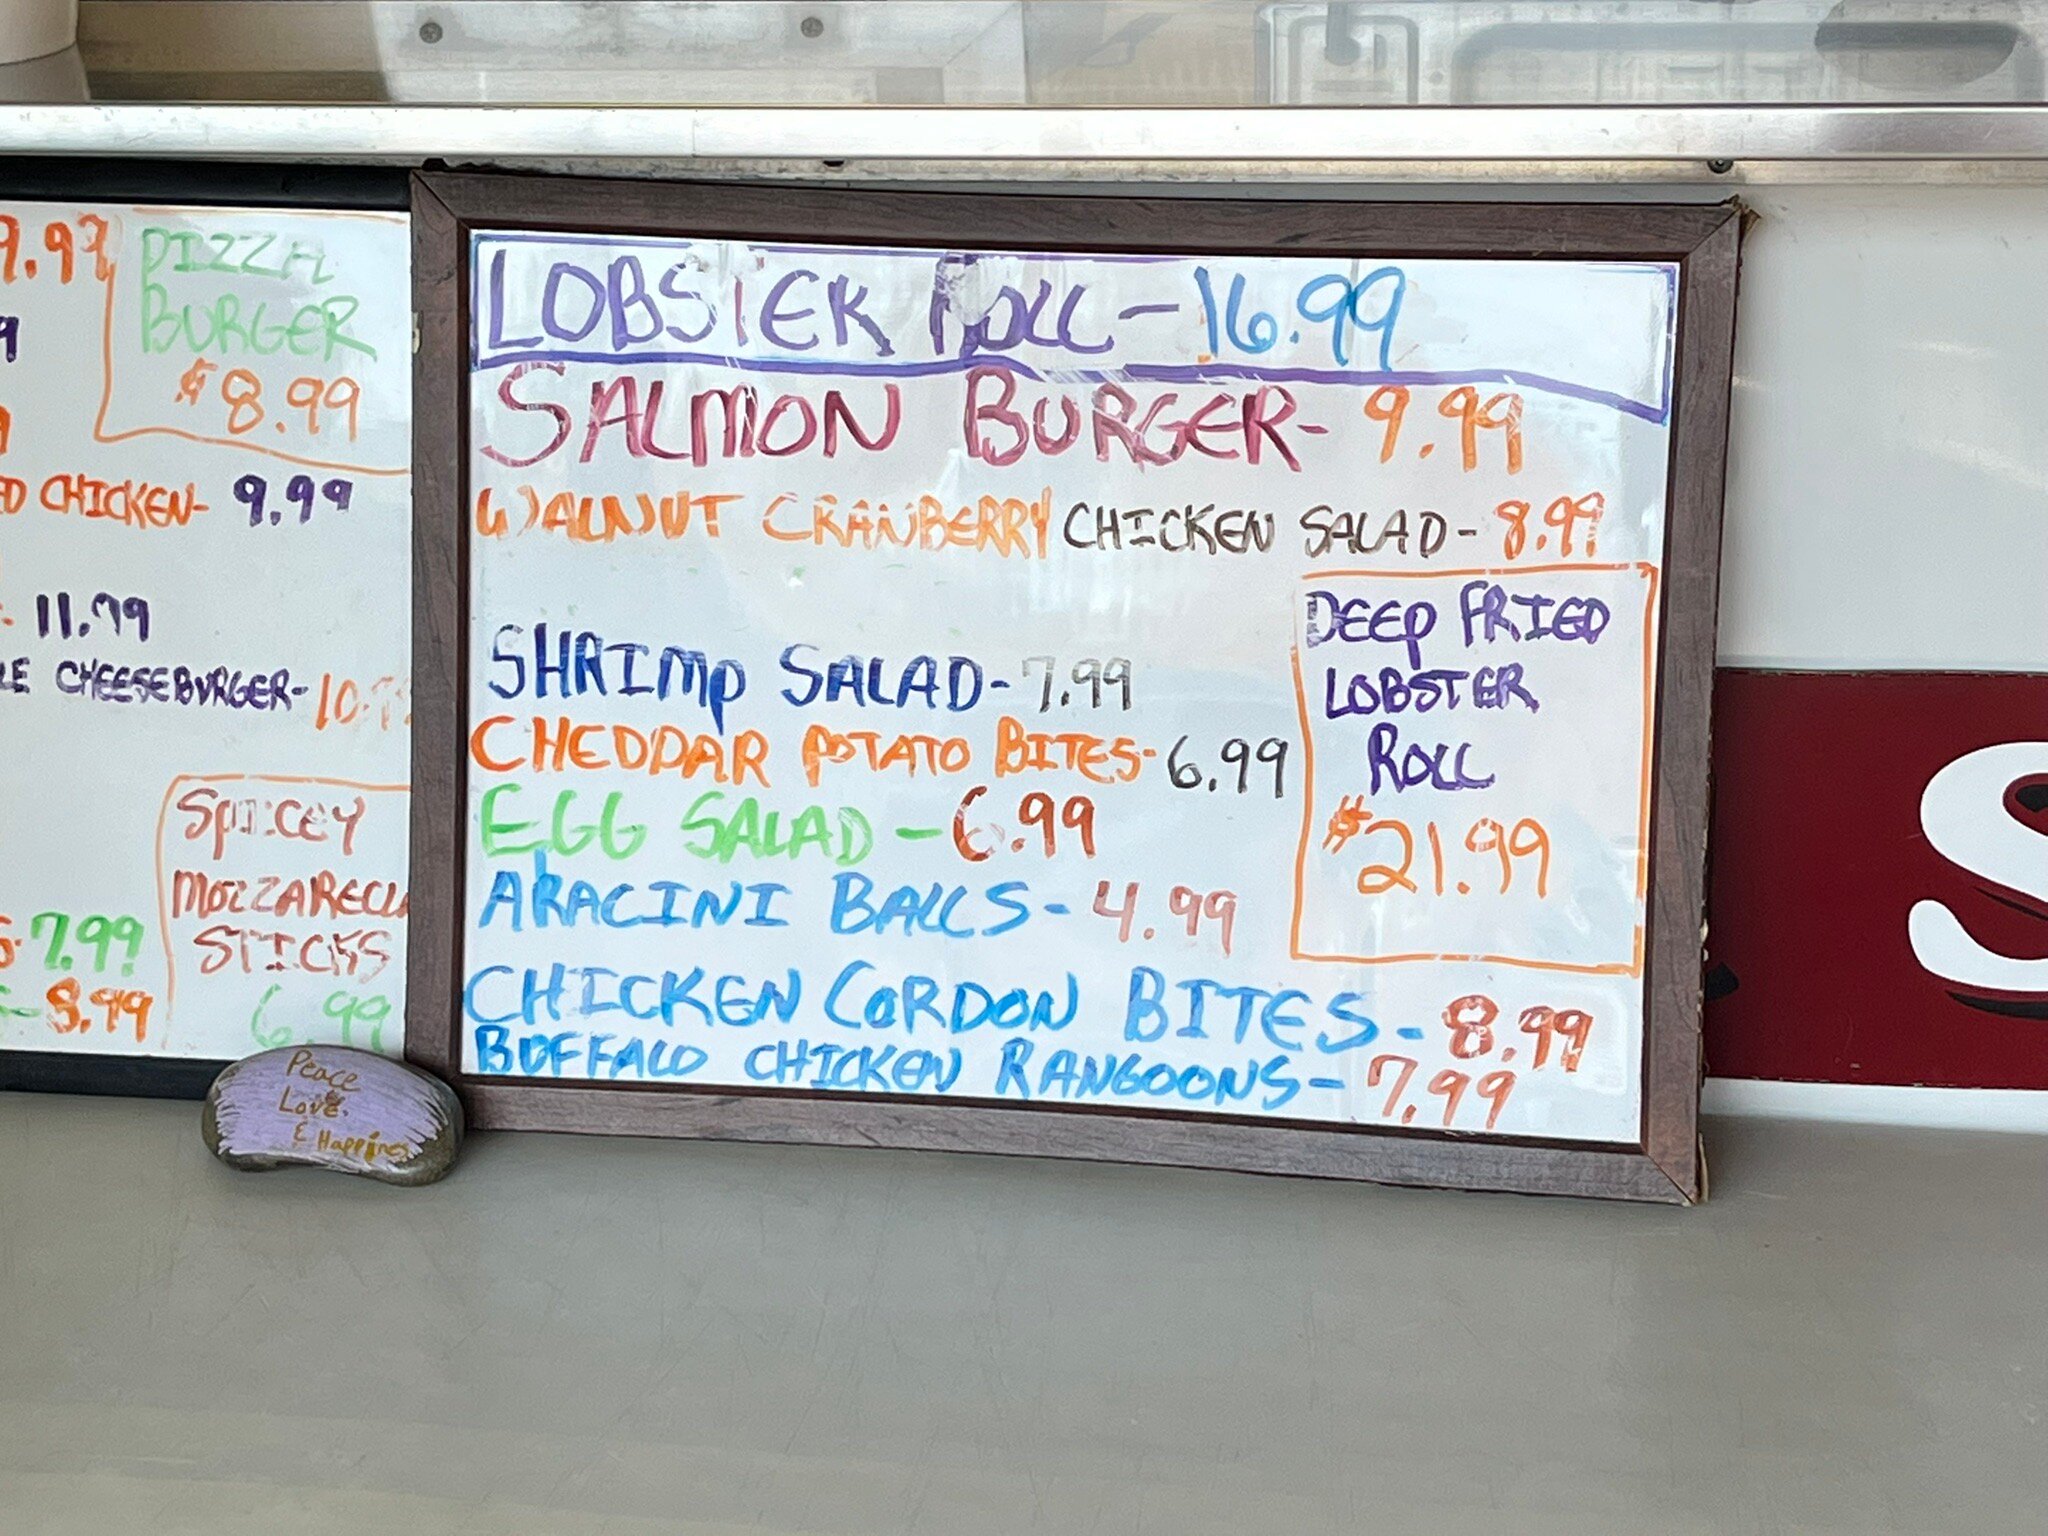 9.99
PIZZA
BURGER
$8.99
CHICKEN- 9.99
11.99
CHEESEBURGER-
SPICEY
MOZZARELLA
STICKS
6.99
7.99
8.99
LOBSTER ROLL - 16.99
SALMON BURGER- 9.99
WALNUT CRANBERRY CHICKEN SALAD- 8.99
SHRIMP SALAD- 7.99
CHEDDAR POTATO BITES- 6.99
EGG SALAD - 6.99
ARACINI BALLS- 4.99
CHICKEN CORDON BITES- 8.99
BUFFALO CHICKEN RANGOONS- 7.99
DEEP FRIED
LOBSTER
ROLL
$21.99
Peace
Love,
& Happiness
S